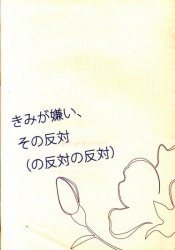 きみが嫌い、
その反対
（の反対の反対）